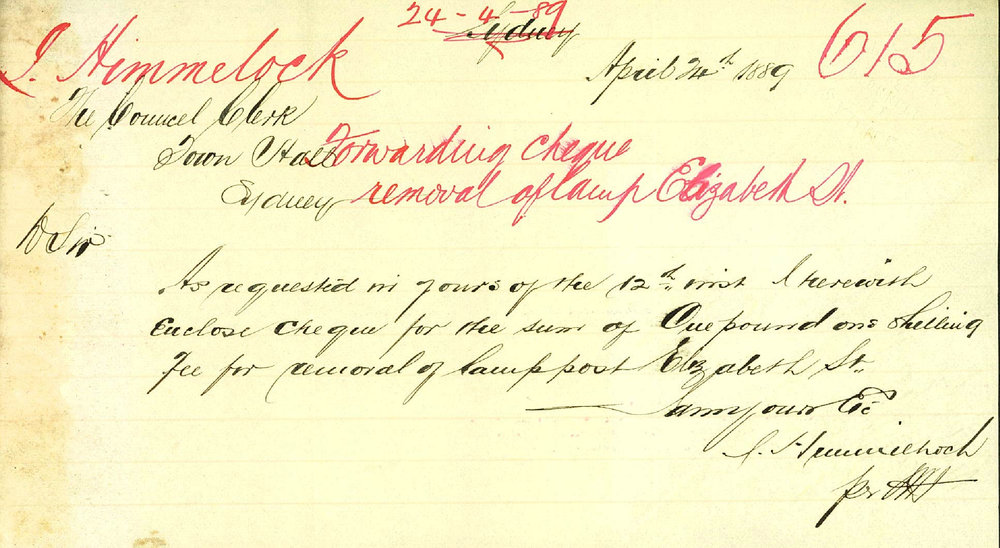 24-4-89
Sydney
615
J. Himmelock
April 24th 1889
The Councel Clerk
Town Hall
Sydney
Forwarding cheque
removal of lamp Elizabeth St.
D Sir
As requested in yours of the 12th inst I herewith
enclose cheque for the sum of One pound one shelling
Fee for removal of lamp post Elizabeth St.
I am yours &c
J. Himmelhoch
pr